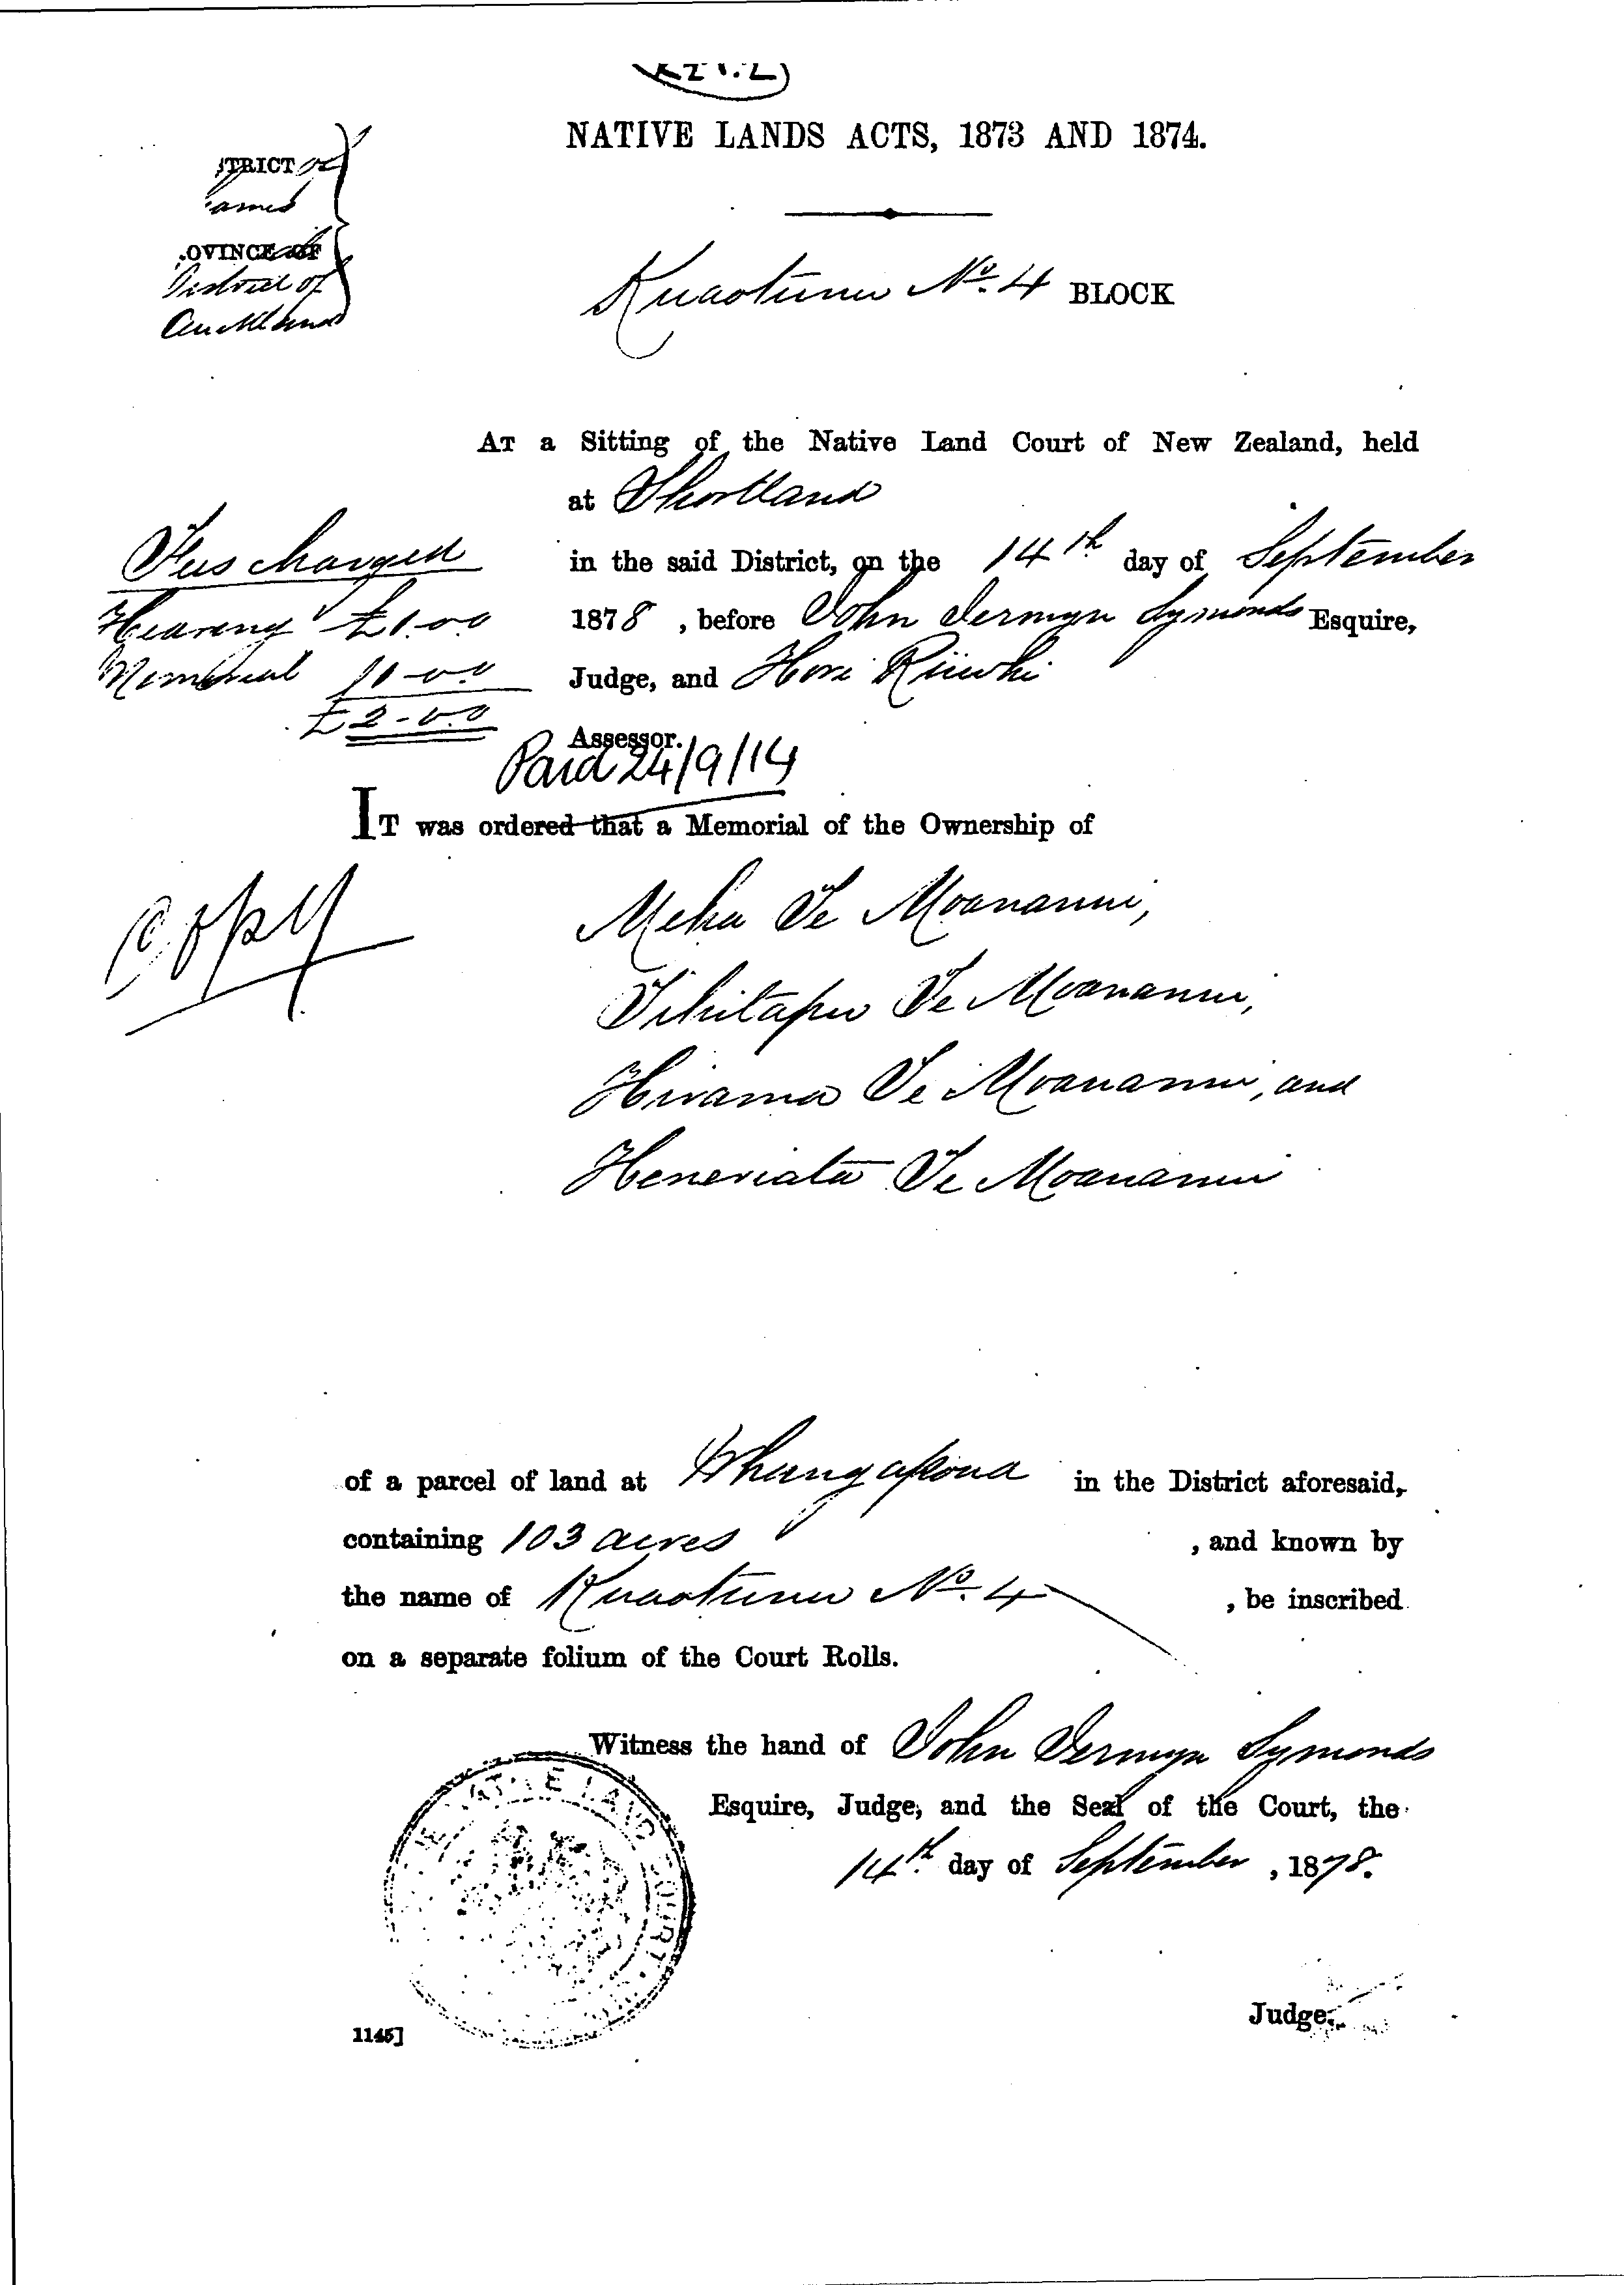 NATIVE LANDS ACTS, 1873 AND 1874.
STRICT of
ames
OVINCE OF
District of
Auckland
Kuaotunu No. 4 BLOCK
AT a Sitting of the Native Land Court of New Zealand, held
at Shortland
in the said District, on the 14th day of September
1878, before John Jermyn Symonds Esquire,
Judge, and Hori Riiwhi
Assessor.
Fees charged
Hearing £1.0.0
Memorial £1.0.0
£2.0.0
Paid 24/9/14
IT was ordered that a Memorial of the Ownership of
Copy
Meha Te Moananui,
Tihitapu Te Moananui,
Hirama Te Moananui, and
Heneriata Te Moananui
of a parcel of land at Whangapoua in the District aforesaid,
containing 103 acres, and known by
the name of Kuaotunu No. 4, be inscribed
on a separate folium of the Court Rolls.
Witness the hand of John Jermyn Symonds
Esquire, Judge, and the Seal of the Court, the
14th day of September, 1878.
NATIVE LAND COURT
Judge.
1145]